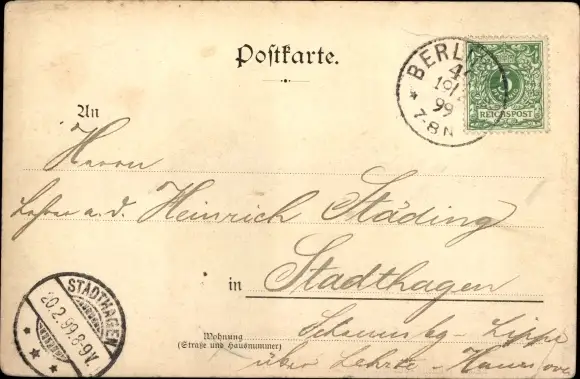 Postkarte.
BERLIN
41
19/
99
7-8 N
5
REICHSPOST
An
Herrn
a. d. Heinrich Städing
in Stadthagen
Wohnung
(Straße und Hausnummer)
Schaumbg-Lippe
über Lehrte-Hannover
STADTHAGEN
20.2.99.8-9V.